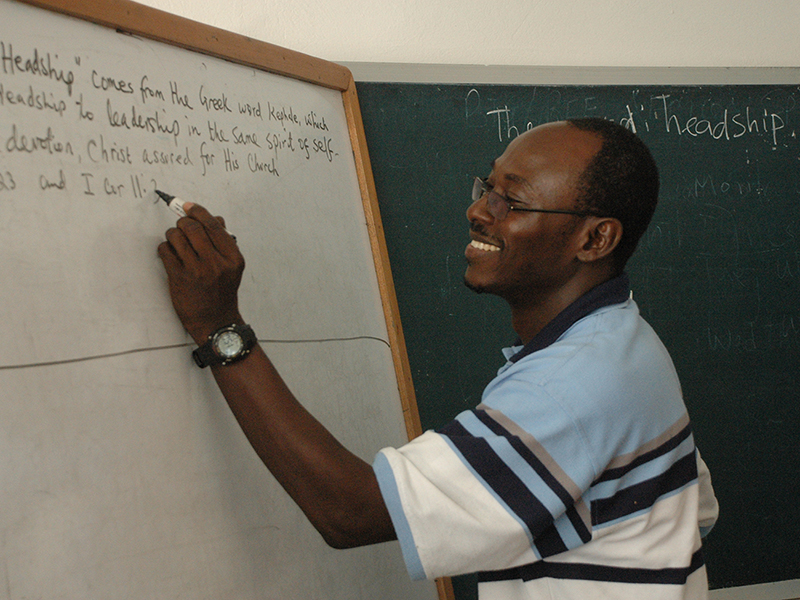 Headship" comes from the Greek word Kephde, which
Headship to leadership in the same spirit of self-
devotion, Christ assured for His Church
23 and I Cor 11.3
The ndi 'headship.
Mont